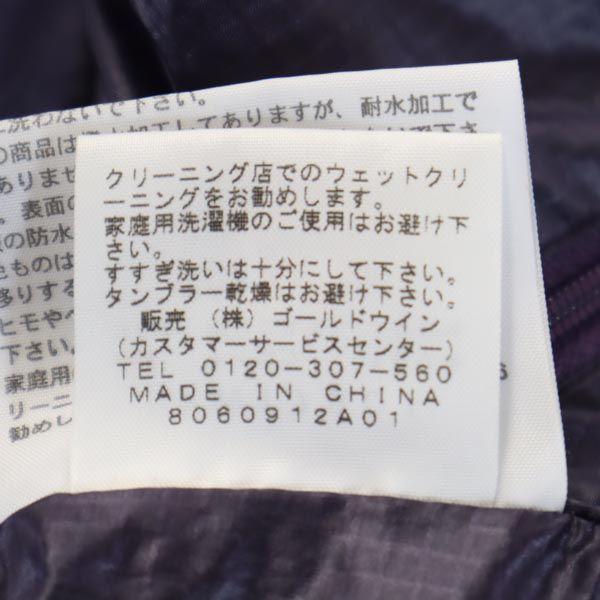 洗わないで下さい。
の商品は
加工してありますが、耐水加工で
ありませ
。表面の
の防水
色ものは
移りする
ヒモやベ
下さい。
家庭用
リーニ
勧めし
クリーニング店でのウェットクリ
ーニングをお勧めします。
家庭用洗濯機のご使用はお避け下
さい。
すすぎ洗いは十分にして下さい。
タンブラー乾燥はお避け下さい。
販売 (株) ゴールドウイン
(カスタマーサービスセンター)
TEL 0120-307-560
MADE IN CHINA
8060912A01